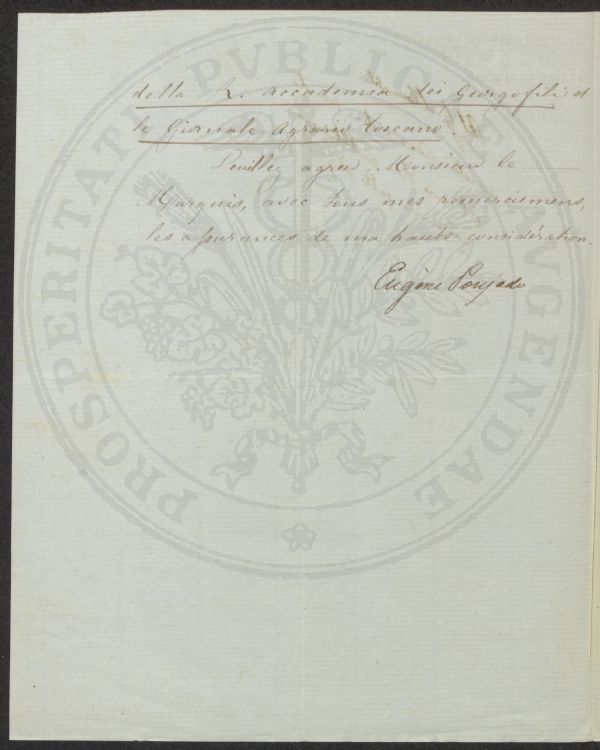 della R. accademia dei Georgofili et
le Giornale Agrario Toscano.
Veuillez agréer, Monsieur le
Marquis, avec tous mes remerciemens,
les assurances de ma haute considération.
Eugène Poujade
PROSPERITATI PVBLICAE AVGENDAE